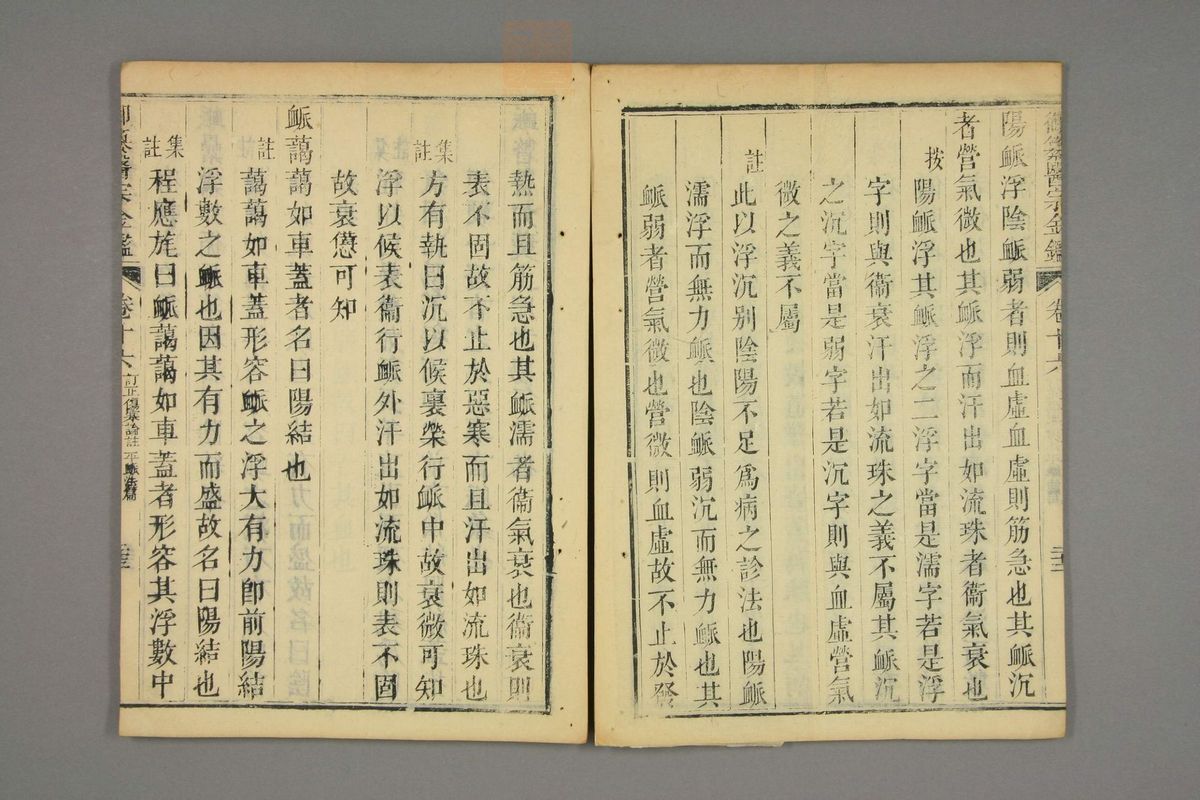 御纂醫宗金鑑 卷十六
陽脈浮陰脈弱者則血虛血虛則筋急也其脈沉
者營氣微也其脈浮而汗出如流珠者衞氣衰也
按 陽脈浮其脈浮之二浮字當是濡字若是浮
字則與衞衰汗出如流珠之義不屬其脈沉
之沉字當是弱字若是沉字則與血虛營氣
微之義不屬
註 此以浮沉別陰陽不足爲病之診法也陽脈
濡浮而無力脈也陰脈弱沉而無力脈也其
脈弱者營氣微也營微則血虛故不止於發
熱而且筋急也其脈濡者衞氣衰也衞衰則
表不固故不止於惡寒而且汗出如流珠也
集註 方有執曰沉以候裏榮行脈中故衰微可知
浮以候表衞行脈外汗出如流珠則表不固
故衰憊可知
脈藹藹如車蓋者名曰陽結也
註 藹藹如車蓋形容脈之浮大有力卽前陽結
浮數之脈也因其有力而盛故名曰陽結也
集註 程應旄曰脈藹藹如車蓋者形容其浮數中
御纂醫宗金鑑 卷十六 訂正傷寒論註 平脈法篇